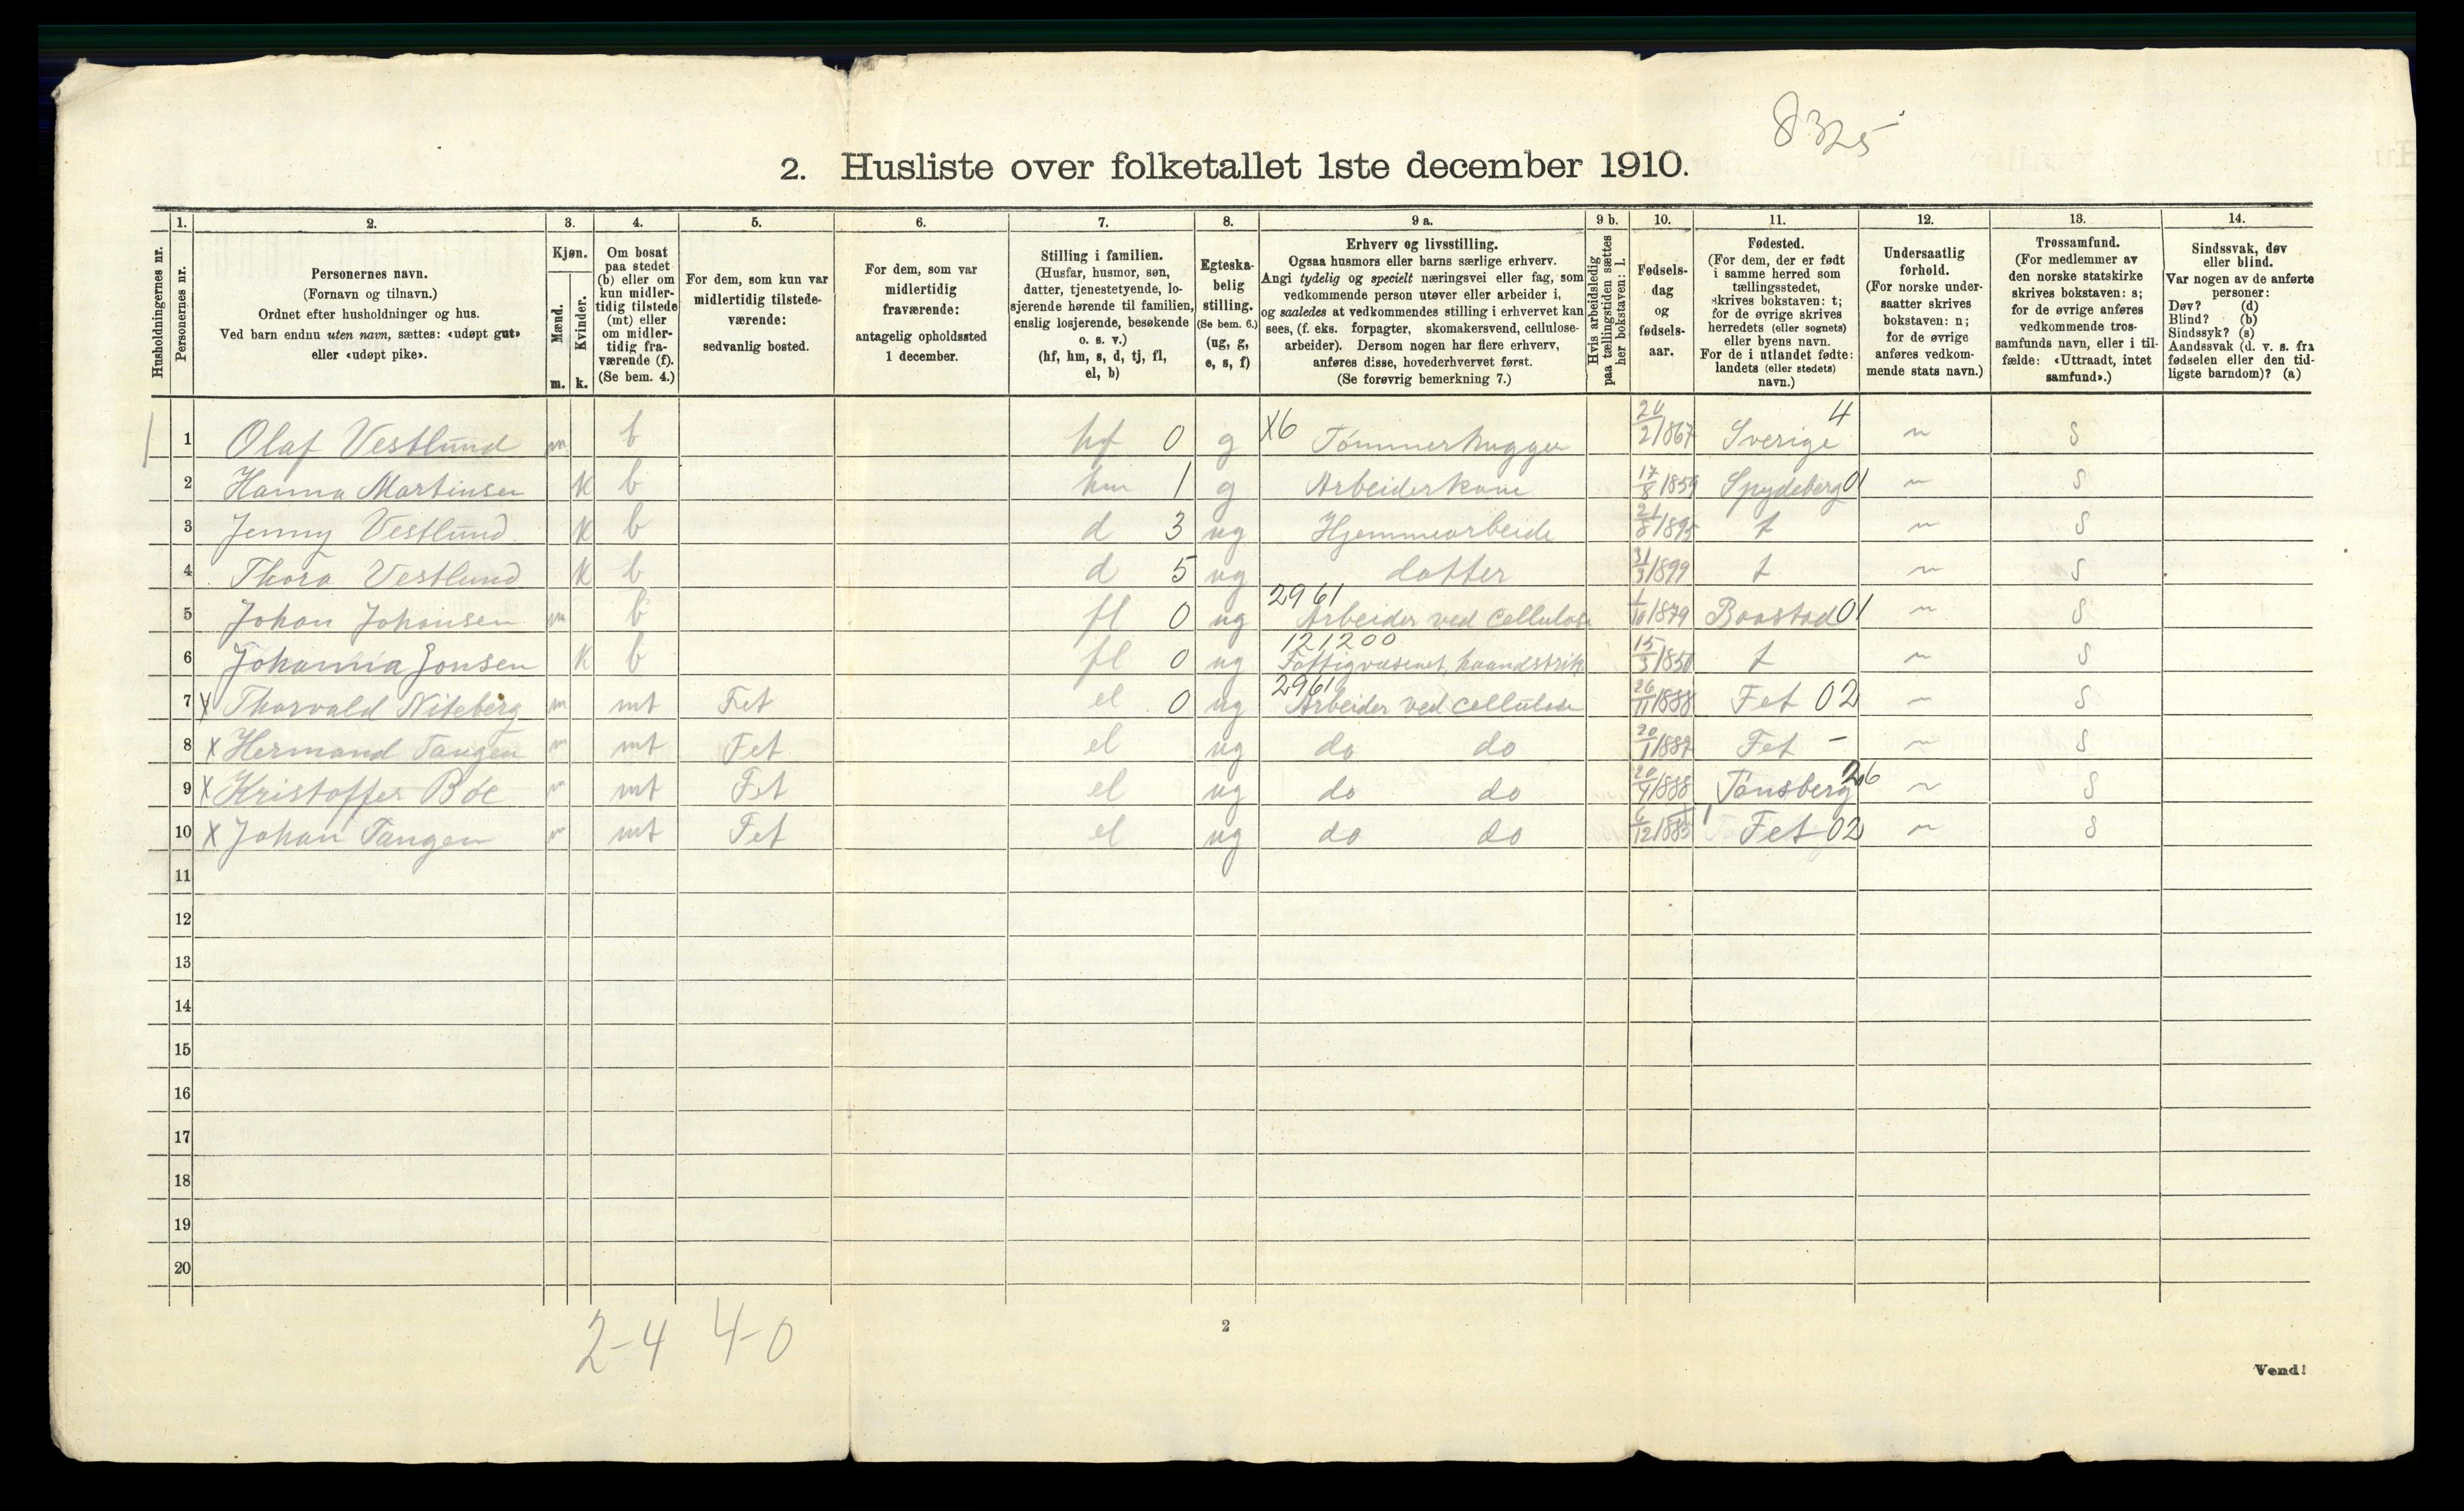 8325
2. Husliste over folketallet 1ste december 1910.
Husholdningernes nr.
1.
Personernes nr.
2.
Personernes navn.
(Fornavn og tilnavn.)
Ordnet efter husholdninger og hus.
Ved barn endnu uten navn, sættes: «udøpt gut»
eller «udøpt pike».
3.
Kjøn.
Mænd.
Kvinder.
m. k.
4.
Om bosat
paa stedet
(b) eller om
kun midler-
tidig tilstede
(mt) eller
om midler-
tidig fra-
værende (f).
(Se bem. 4.)
5.
For dem, som kun var
midlertidig tilstede-
værende:
sedvanlig bosted.
6.
For dem, som var
midlertidig
fraværende:
antagelig opholdssted
1 december.
7.
Stilling i familien.
(Husfar, husmor, søn,
datter, tjenestetyende, lo-
sjerende hørende til familien,
enslig losjerende, besøkende
o. s. v.)
(hf, hm, s, d, tj, fl,
el, b)
8.
Egteska-
belig
stilling.
(Se bem. 6.)
(ug, g,
e, s, f)
9 a.
Erhverv og livsstilling.
Ogsaa husmors eller barns særlige erhverv.
Angi tydelig og specielt næringsvei eller fag, som
vedkommende person utøver eller arbeider i,
og saaledes at vedkommendes stilling i erhvervet kan
sees, (f. eks. forpagter, skomakersvend, cellulose-
arbeider). Dersom nogen har flere erhverv,
anføres disse, hovederhvervet først.
(Se forøvrig bemerkning 7.)
9 b.
Hvis arbeidsledig
paa tællingstiden sættes
her bokstaven: l.
10.
Fødsels-
dag
og
fødsels-
aar.
11.
Fødested.
(For dem, der er født
i samme herred som
tællingsstedet,
skrives bokstaven: t;
for de øvrige skrives
herredets (eller sognets)
eller byens navn.
For de i utlandet fødte:
landets (eller stedets)
navn.)
12.
Undersaatlig
forhold.
(For norske under-
saatter skrives
bokstaven: n;
for de øvrige
anføres vedkom-
mende stats navn.)
13.
Trossamfund.
(For medlemmer av
den norske statskirke
skrives bokstaven: s;
for de øvrige anføres
vedkommende tros-
samfunds navn, eller i til-
fælde: «Uttraadt, intet
samfund».)
14.
Sindssvak, døv
eller blind.
Var nogen av de anførte
personer:
Døv? (d)
Blind? (b)
Sindssyk? (s)
Aandssvak (d. v. s. fra
fødselen eller den tid-
ligste barndom)? (a)
1 1 Olaf Vestlund m b hf 0 g X6 Tømmerhugger 20/2 1867 Sverige 4 n S
2 Hanna Martinsen k b hm 1 g Arbeiderkone 17/8 1859 Spydeberg 01 n S
3 Jenny Vestlund k b d 3 ug Hjemmearbeide 21/8 1895 t n S
4 Thora Vestlund k b d 5 ug datter 31/3 1899 t n S
5 Johan Johansen m b fl 0 ug 2961 Arbeider ved Cellulose 1/10 1879 Baastad 01 n S
6 Johanna Jonsen k b fl 0 ug 121200 Fattigvæsenet, haandstrik. 15/3 1850 t n S
7 X Thorvald Niteberg m mt Fet el 0 ug 2961 Arbeider ved Cellulose 26/11 1888 Fet 02 n S
8 X Hermand Tangen m mt Fet el ug do do 20/1 1887 Fet - n S
9 X Kristoffer Bøe m mt Fet el ug do do 20/4 1888 Tønsberg 26 n S
10 X Johan Tangen m mt Fet el ug do do 6/12 1885 Fet 02 n S
11
12
13
14
15
16
17
18
19
20
2-4 4-0
2
Vend!